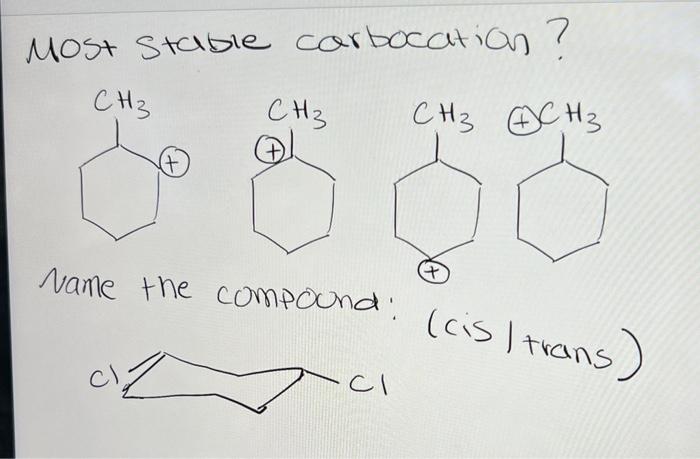 Most stable carbocation?
CH3 CH3 CH3 ⊕CH3
⊕ ⊕
⊕
Name the compound: (cis/trans)
Cl Cl